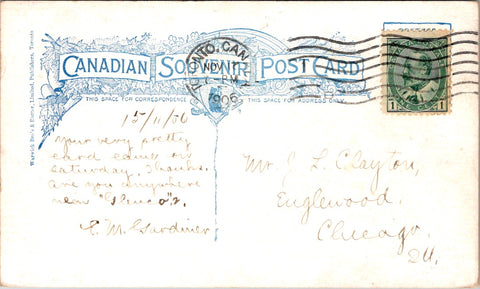 Warwick Bro's & Rutter, Limited, Publishers, Toronto
CANADIAN SOUVENIR POST CARD
THIS SPACE FOR CORRESPONDENCE
THIS SPACE FOR ADDRESS ONLY
TORONTO, CAN.
NOV
PM
1906
1 1
15/11/06
Your very pretty
card came on
Saturday, Thanks.
Are you anywhere
near "Glencoe"?
E. M. Gardiner
Mr. J. L. Clayton,
Englewood.
Chicago.
Ill.